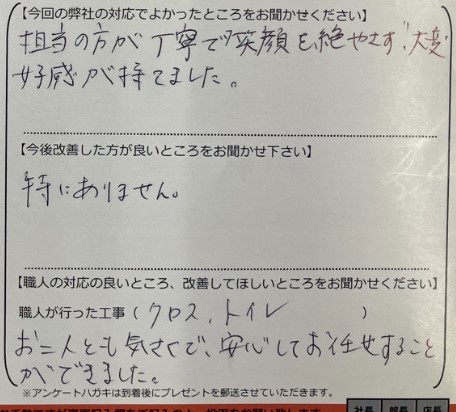 【今回の弊社の対応でよかったところをお聞かせください】
担当の方が丁寧で笑顔を絶やさず、大変
好感が持てました。
【今後改善した方が良いところをお聞かせ下さい】
特にありません。
【職人の対応の良いところ、改善してほしいところをお聞かせください】
職人が行った工事（クロス、トイレ）
お二人とも気さくで、安心してお任せすること
ができました。
※アンケートハガキは到着後にプレゼントを郵送させていただきます。
社長 部長 店長